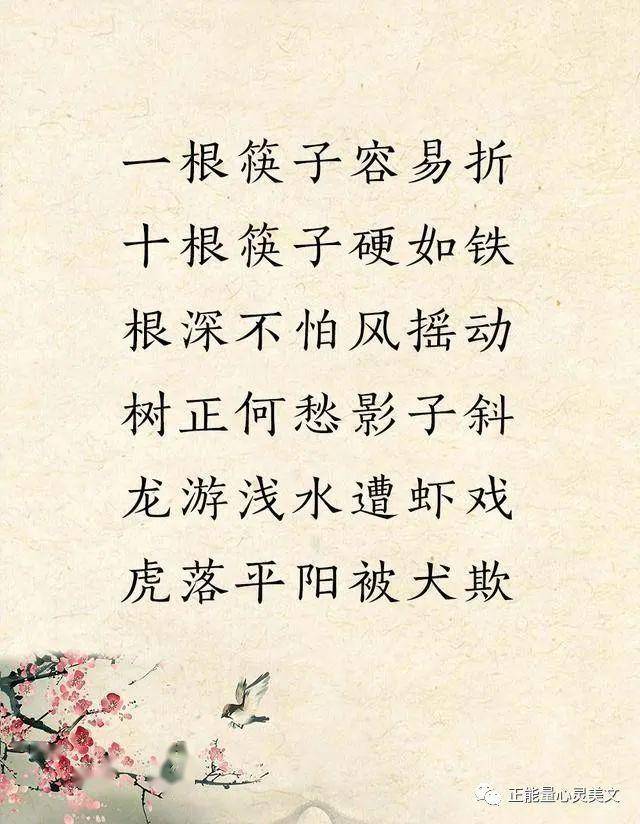 一根筷子容易折
十根筷子硬如铁
根深不怕风摇动
树正何愁影子斜
龙游浅水遭虾戏
虎落平阳被犬欺
正能量心灵美文